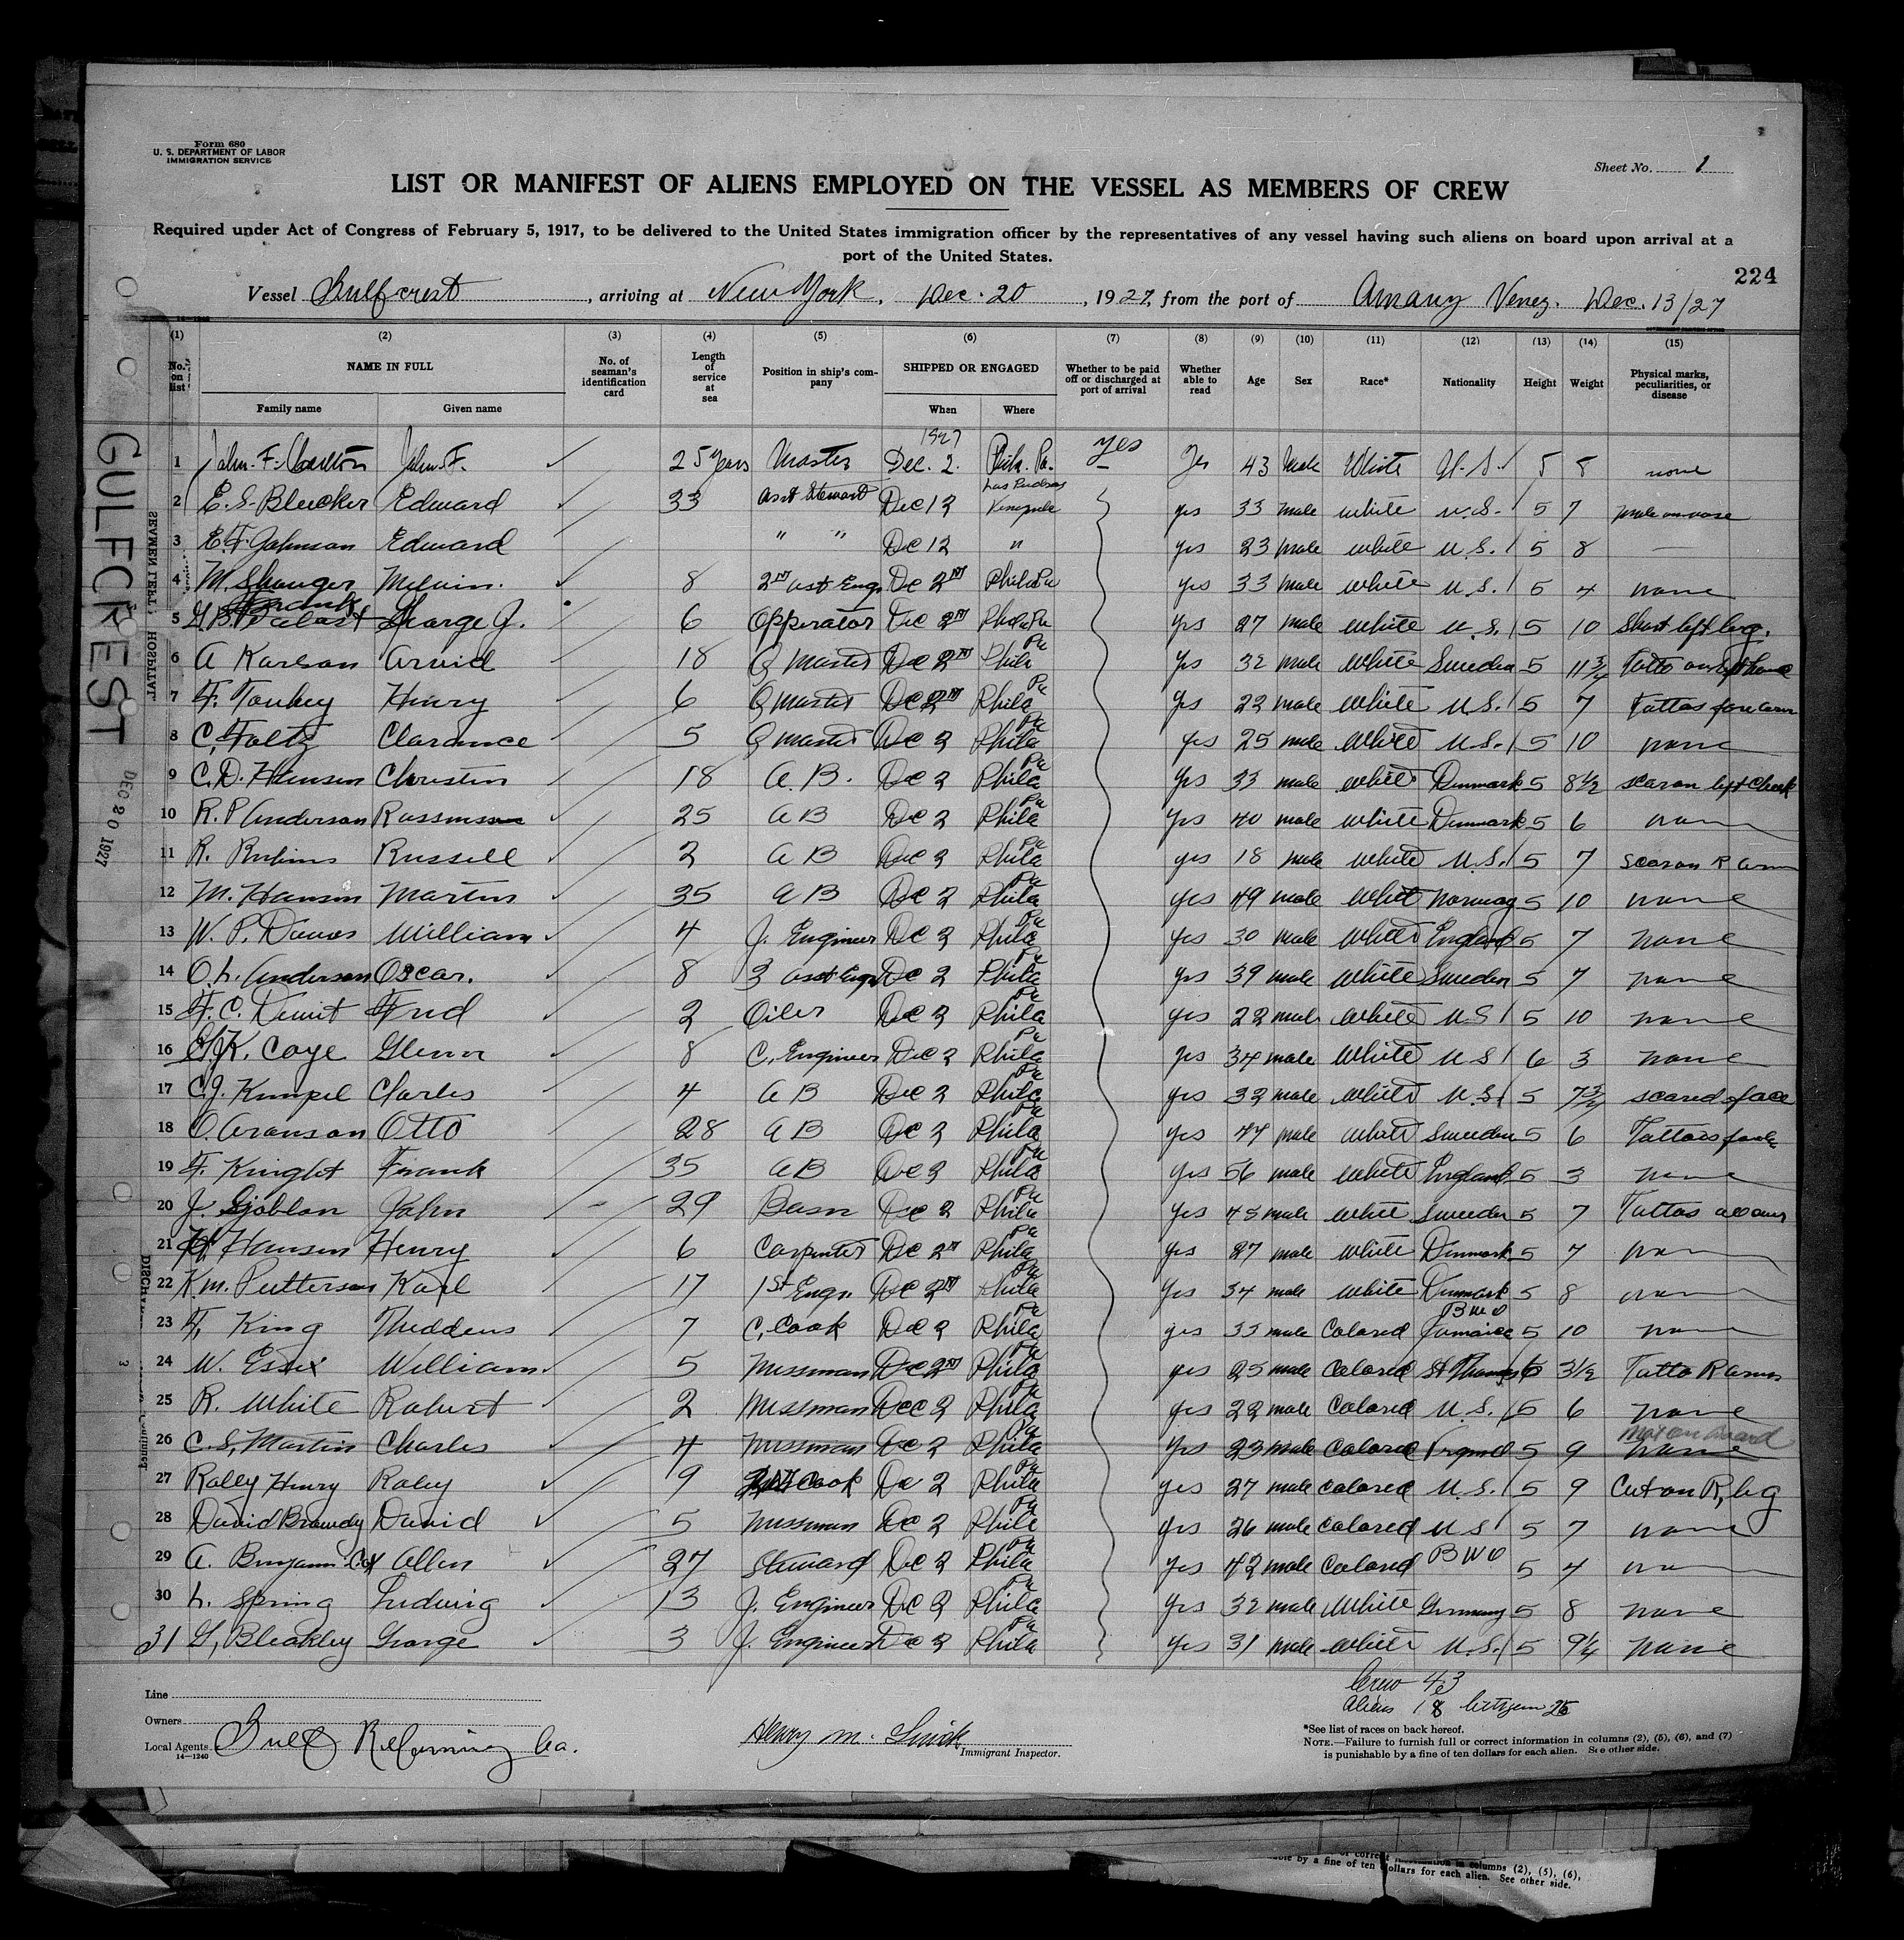 Form 680
U. S. DEPARTMENT OF LABOR
IMMIGRATION SERVICE
Sheet No. 1
LIST OR MANIFEST OF ALIENS EMPLOYED ON THE VESSEL AS MEMBERS OF CREW
Required under Act of Congress of February 5, 1917, to be delivered to the United States immigration officer by the representatives of any vessel having such aliens on board upon arrival at a
port of the United States.
224
Vessel Gulfcrest, arriving at New York, Dec. 20, 1927, from the port of Amany Venez. Dec. 13/27
(1) (2) (3) (4) (5) (6) (7) (8) (9) (10) (11) (12) (13) (14) (15)
No. on list NAME IN FULL Family name Given name No. of seaman's identification card Length of service at sea Position in ship's company SHIPPED OR ENGAGED When Where Whether to be paid off or discharged at port of arrival Whether able to read Age Sex Race* Nationality Height Weight Physical marks, peculiarities, or disease
1927
1 John F. John F. 25 years Master Dec. 2. Phila. Pa. yes Yes 43 Male White U.S. 5 8 none
2 E. S. Bleecker Edward 33 Asst Steward Dec 12 yes 33 male white U.S. 5 7
3 E. F. Johnson Edward " " Dec 12 " yes 23 male white U.S. 5 8 —
4 Melvin. 8 2nd Asst Eng. Dec 2nd Phila Pa yes 33 male white U.S. 5 4 none
5 George J. 6 Opperator Dec 2nd Phila Pa yes 27 male white U.S. 5 10 Short left leg.
6 A Karlson Arvid 18 Q Master Dec 2nd Phila Pa yes 32 male White Sweden 5 11 3/4 Tatto
7 F. Henry 6 Q Master Dec 2nd Phila Pa yes 22 male white U.S. 5 7 Tattos fore arm
8 C. Foltz Clarance 5 Q master Dec 2 Phila Pa yes 25 male White U.S. 5 10 none
9 C. D. Hansen Christen 18 A. B. Dec 2 Phila Pa yes 33 male white Denmark 5 8 1/2 scar on left cheek
10 R. P. Anderson Rassmussen 25 A B Dec 2 Phila Pa yes 40 male white Denmark 5 6 none
11 R. Russell 2 A B Dec 2 Phila Pa yes 18 male white U.S. 5 7 scar on R arm
12 M. Hanson Martin 35 A B Dec 2 Phila Pa yes 49 male white Norway 5 10 none
13 W. P. Davos William 4 J. Engineer Dec 2 Phila Pa yes 30 male White England 5 7 none
14 O. L. Anderson Oscar. 8 3 asst Engr Dec 2 Phila Pa yes 39 male white Sweden 5 7 none
15 F. C. Fred 2 Oiler Dec 2 Phila Pa yes 22 male white U.S. 5 10 none
16 G. K. Coye Glenn 8 C. Engineer Dec 2 Phila Pa yes 34 male White U.S. 6 3 none
17 C. J. Kimpel Charles 4 A B Dec 2 Phila Pa yes 32 male white U.S. 5 7 3/4 scared face
18 O. Aranson Otto 28 A B Dec 2 Phila Pa yes 44 male white Sweden 5 6 Tattos
19 F. Knight Frank 35 A B Dec 2 Phila Pa yes 56 male white England 5 3 none
20 J. Sjoblon John 29 Bosn Dec 2 Phila Pa yes 45 male white Sweden 5 7 Tattos
21 H Hansen Henry 6 Carpenter Dec 2nd Phila Pa yes 27 male White Denmark 5 7 none
22 K. M. Putterson Karl 17 1st Engr. Dec 2nd Phila Pa yes 34 male white Denmark 5 8 none
23 F. King Thiddeus 7 C. Cook Dec 2 Phila Pa yes 33 male Colored BWI Jamaica 5 10 none
24 W. Essix William 5 Messman Dec 2nd Phila Pa yes 25 male Colored St Thomas 5 3 1/2 Tatto R arm
25 R. White Robert 2 Messman Dec 2 Phila Pa yes 22 male Colored U.S. 5 6 none
26 C. S. Martin Charles 4 Messman Dec 2 Phila Pa yes 23 male Colored 5 9 none not on board
27 Raley Henry Raley 9 Cook Dec 2 Phila Pa yes 27 male colored U.S. 5 9 Cut on R. leg
28 David Brawdy David 5 Messman Dec 2 Phila Pa yes 26 male colored U.S. 5 7 none
29 A. Benjamin Allen 27 Steward Dec 2 Phila Pa yes 42 male colored BWI 5 4 none
30 L. Spring Ludwig 13 J. Engineer Dec 2 Phila Pa yes 32 male White Germany 5 8 none
31 G. Bleakley George 3 J. Engineer Dec 2 Phila Pa yes 31 male White U.S. 5 9 1/4 none
Crew 43
Aliens 18 25
Line
Owners
Local Agents Gulf Refining Co.
14—1240
Henry M.
Immigrant Inspector.
*See list of races on back hereof.
NOTE.—Failure to furnish full or correct information in columns (2), (5), (6), and (7)
is punishable by a fine of ten dollars for each alien. See other side.
GULFCREST
DEC 20 1927
SEYMEN LEFT HOSPITAL
columns (2), (5), (6),
ble by a fine of ten dollars for each alien. See other side.